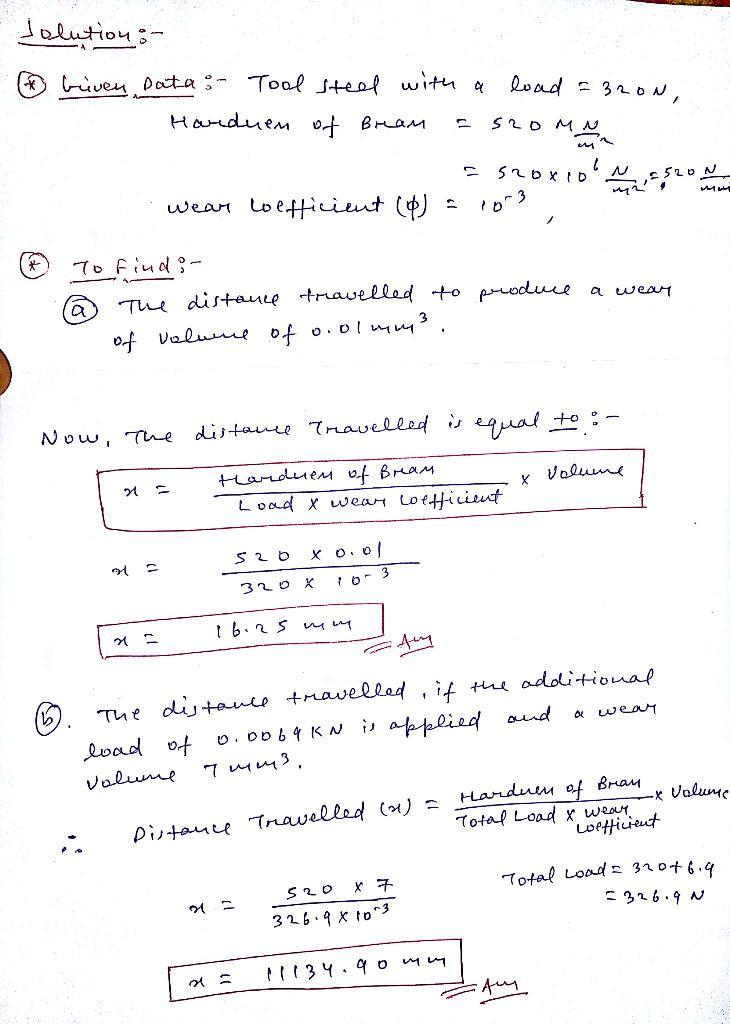 Solution :-
* Given Data :- Tool steel with a load = 320N,
Hardness of Brass = 520 MN/m²
= 520 x 10⁶ N/m², = 520 N/mm
wear coefficient (ϕ) = 10⁻³,
* To find :-
(a) The distance travelled to produce a wear
of volume of 0.01 mm³.
Now, The distance Travelled is equal to :-
x = Hardness of Brass / Load x wear coefficient x Volume
x = 520 x 0.01 / 320 x 10⁻³
x = 16.25 mm Ans
(b). The distance travelled, if the additional
load of 0.0069 KN is applied and a wear
volume 7 mm³.
∴ Distance Travelled (x) = Hardness of Brass / Total Load x wear coefficient x Volume
x = 520 x 7 / 326.9 x 10⁻³
Total Load = 320+6.9
= 326.9 N
x = 11134.90 mm Ans